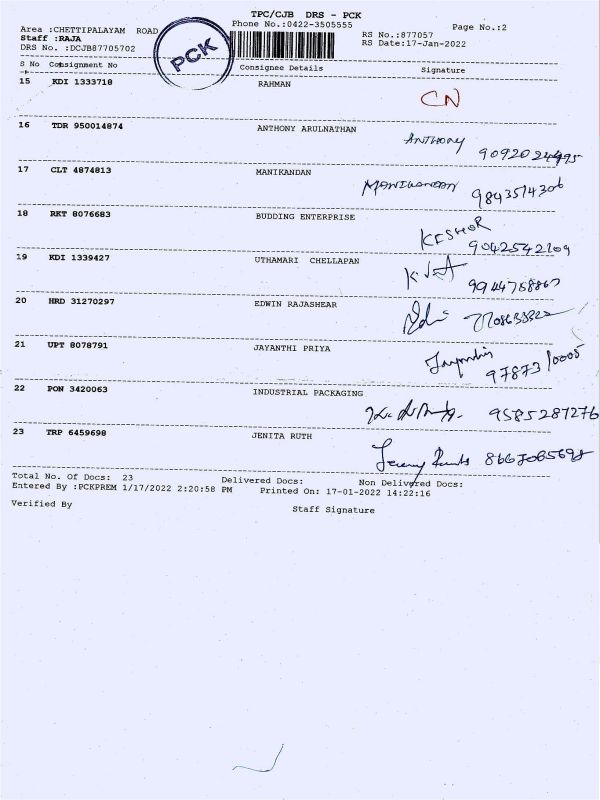 TPC/CJB DRS - PCK
Area :CHETTIPALAYAM ROAD Phone No.:0422-3505555 Page No.:2
Staff :RAJA RS No.:877057
DRS No. :DCJB87705702 RS Date:17-Jan-2022
PCK
S No Consignment No Consignee Details Signature
15 KDI 1333718 RAHMAN CN
16 TDR 950014874 ANTHONY ARULNATHAN ANTHONY
17 CLT 4874813 MANIKANDAN MANIKANDAN 9843514306
18 RKT 8076683 BUDDING ENTERPRISE KESHOR 9042542109
19 KDI 1339427 UTHAMARI CHELLAPAN
20 HRD 31270297 EDWIN RAJASHEAR
21 UPT 8078791 JAYANTHI PRIYA 9787310005
22 PON 3420063 INDUSTRIAL PACKAGING 9585287276
23 TRP 6459698 JENITA RUTH
Total No. Of Docs: 23 Delivered Docs: Non Delivered Docs:
Entered By :PCKPREM 1/17/2022 2:20:58 PM Printed On: 17-01-2022 14:22:16
Verified By Staff Signature